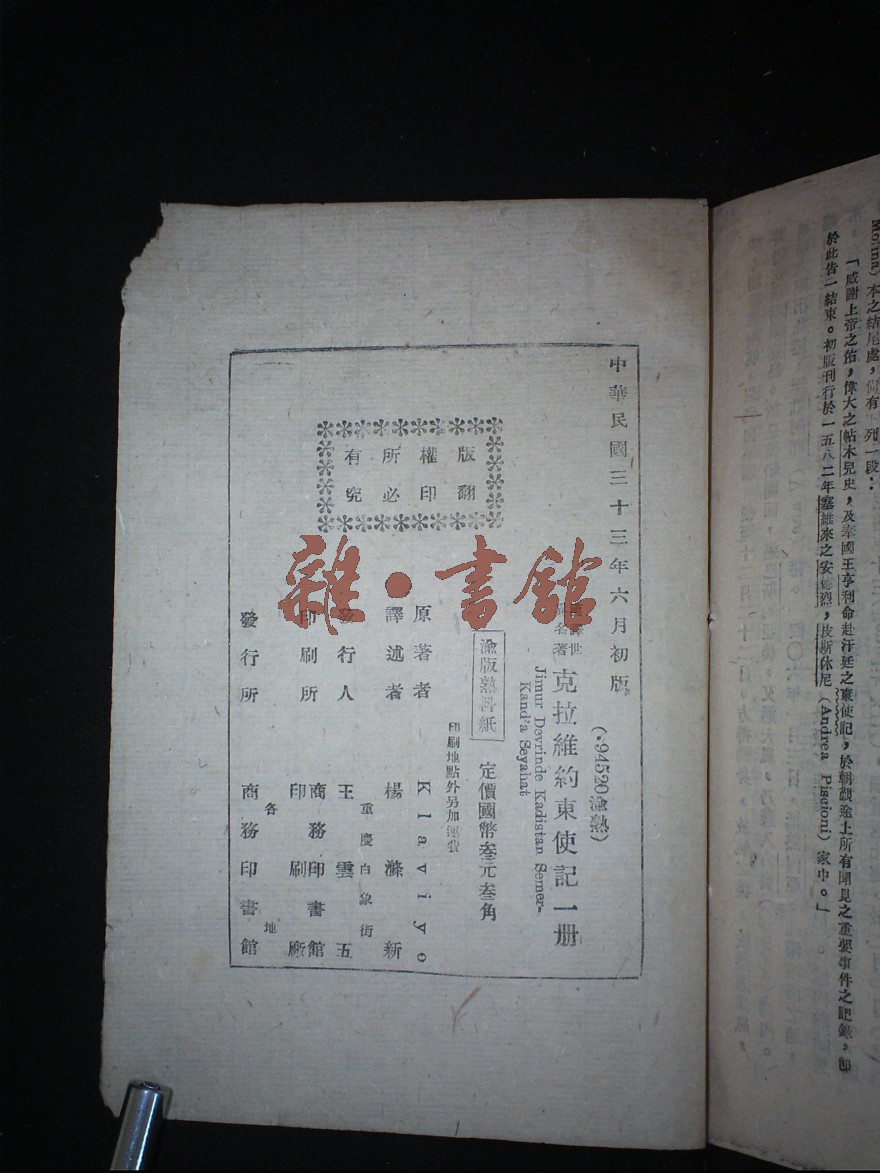 Morina)本之結尾處,尙有下列一段:
「感謝上帝之佑,偉大之帖木兒史,及奉國王亨利命赴汗廷之東使記,於朝覲途上所有聞見之重要事件之記錄,卽
於此告一結束。初版刊行於一五八二年塞維來之安德烈,皮斯休尼(Andrea Piscioni)家中。」
中華民國三十三年六月初版
(·94520渝熱)
克拉維約東使記一册
Jimur Devrinde Kadistan Semer-
Kand'a Seyahat
渝版熟料紙 定價國幣叁元叁角
印刷地點外另加運費
版權所有
翻印必究
原著者 Klaviyo
譯述者 楊滌新
重慶白象街
發行人 王雲五
印刷所 商務印書館
印刷廠
各地
發行所 商務印書館
雜·書館